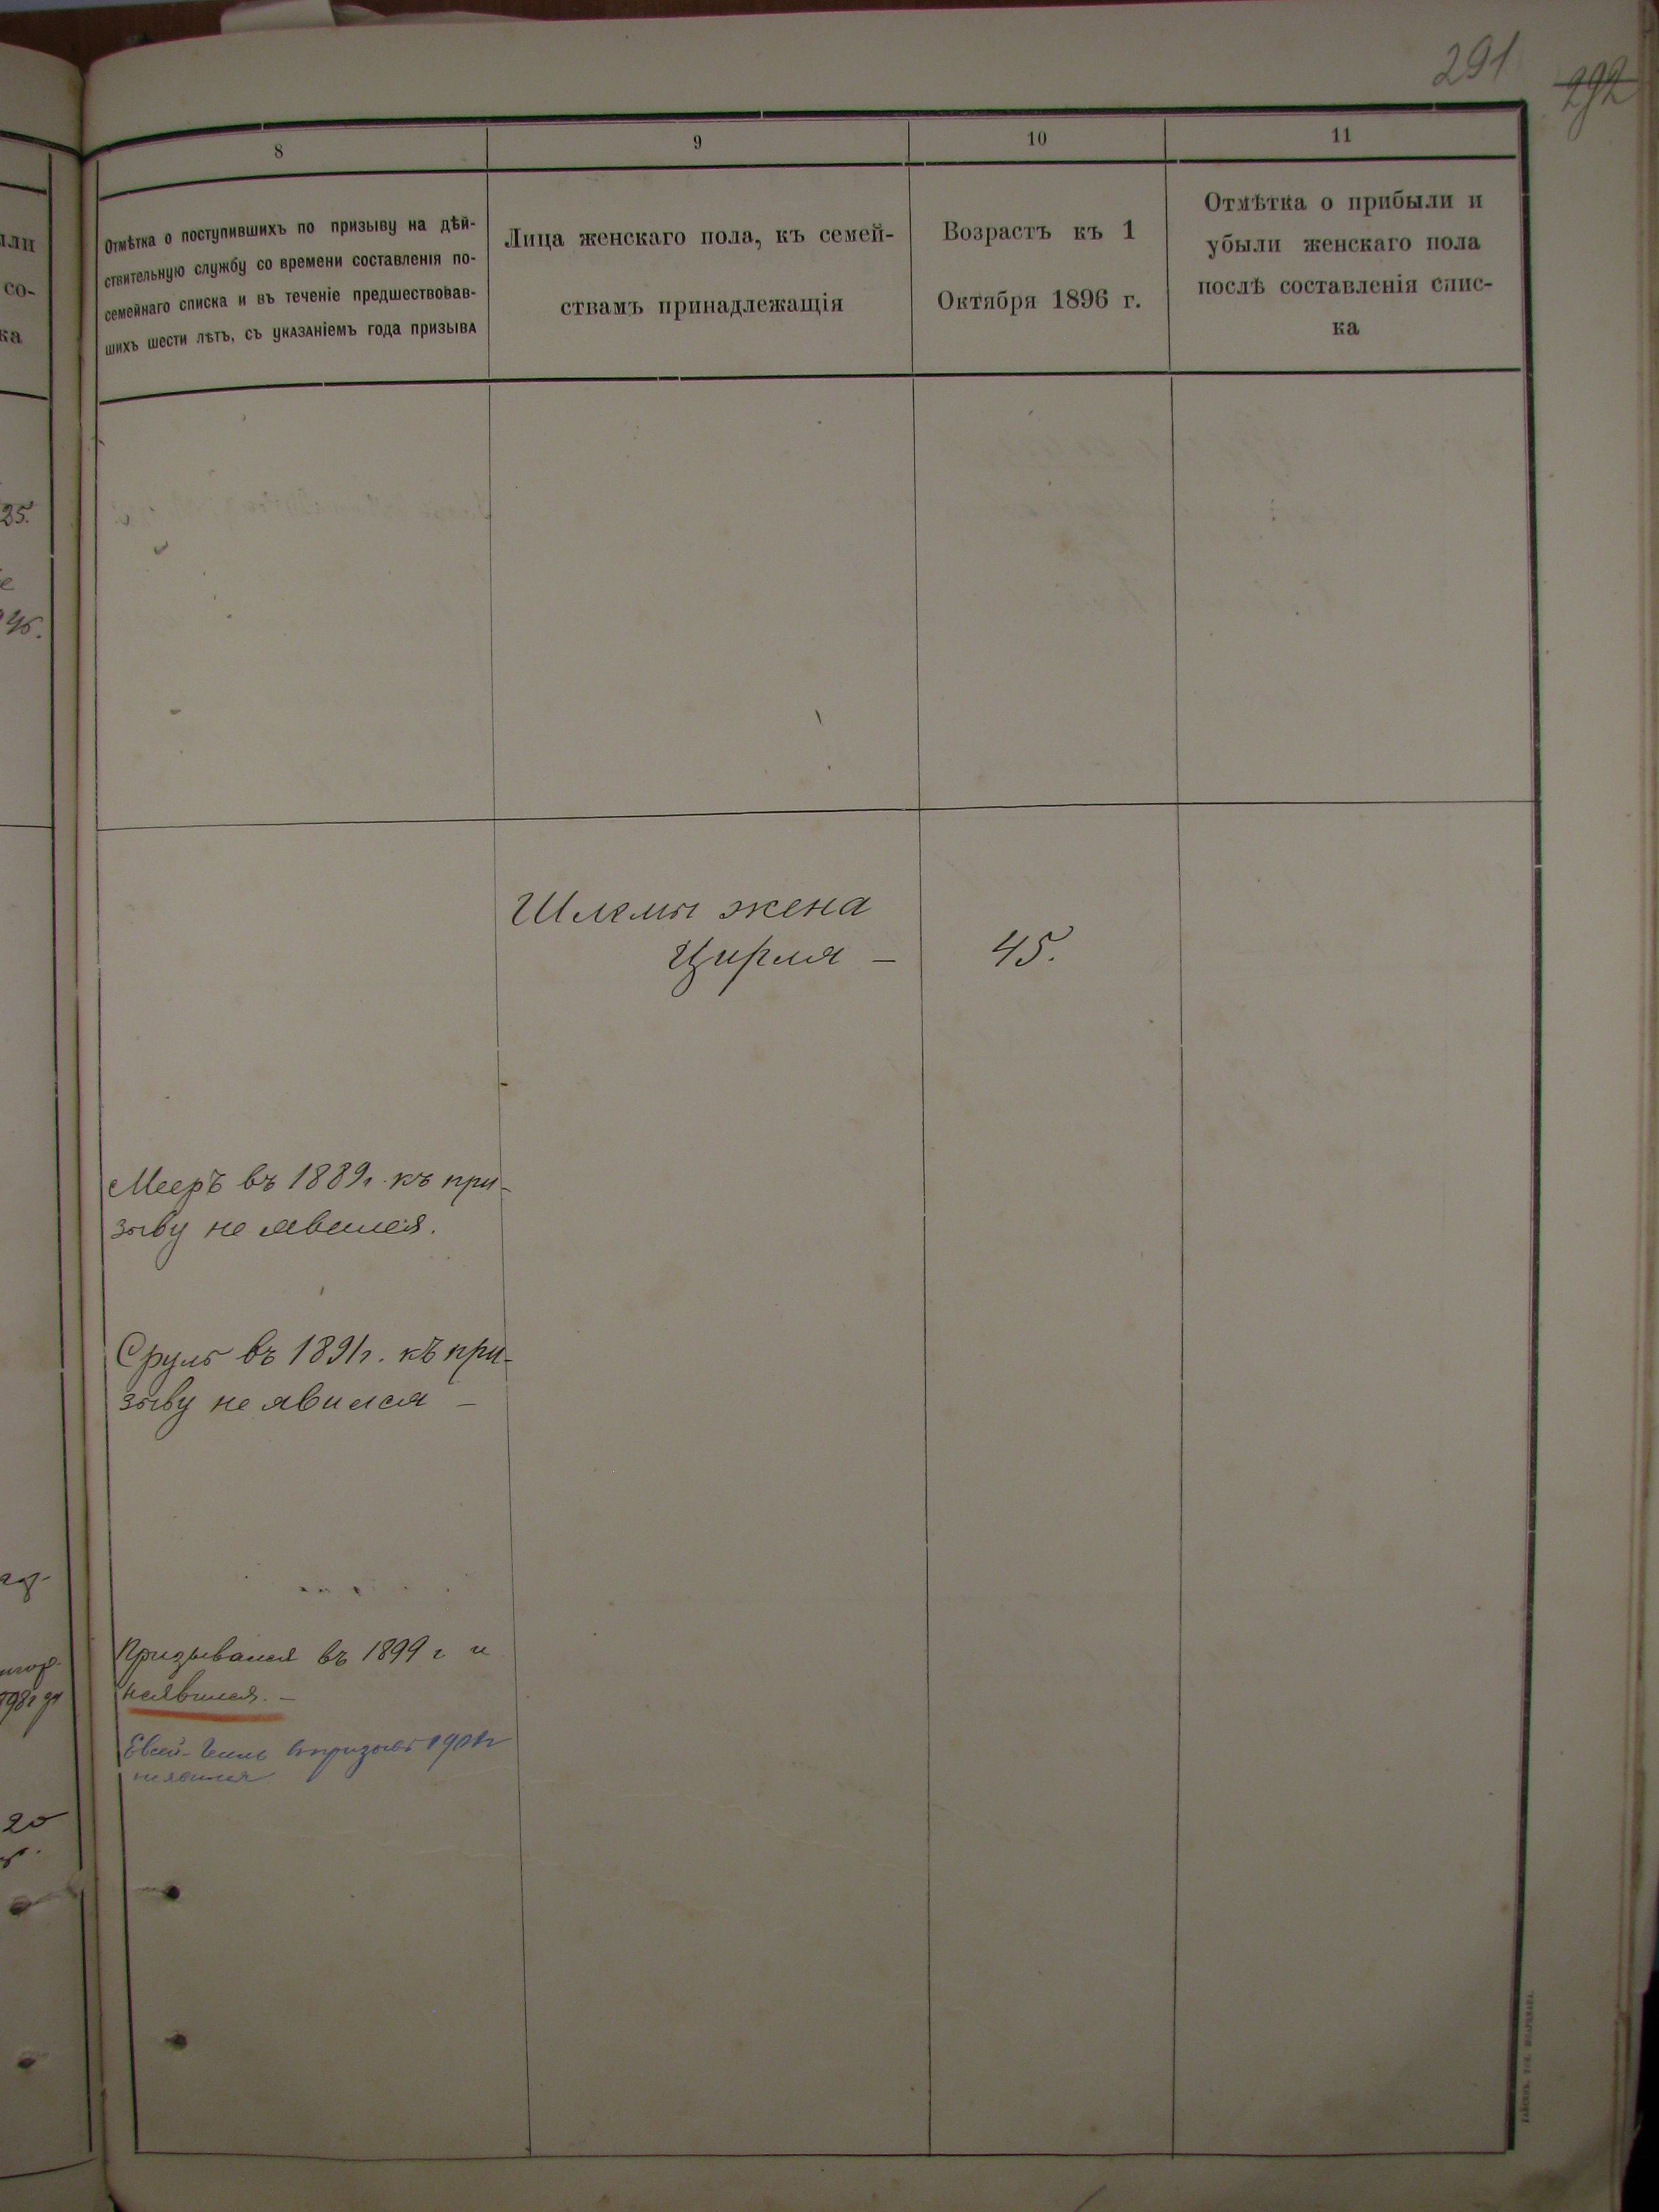 291
292
8
9
10
11
Отмѣтка о поступившихъ по призыву на дѣй-
ствительную службу со времени составленія по-
семейнаго списка и въ теченіе предшествовав-
шихъ шести лѣтъ, съ указаніемъ года призыва
Лица женскаго пола, къ семей-
ствамъ принадлежащія
Возрастъ къ 1
Октября 1896 г.
Отмѣтка о прибыли и
убыли женскаго пола
послѣ составленія спис-
ка
или
со-
ка
25.
Шлемы жена
Цирля – 45.
Мееръ въ 1889г. къ при-
зыву не явился.
Сруль въ 1891г. къ при-
зыву не явился –
Призывался въ 1899 г и
неявился. –
Евсей- призывъ 1901г
неявился
20